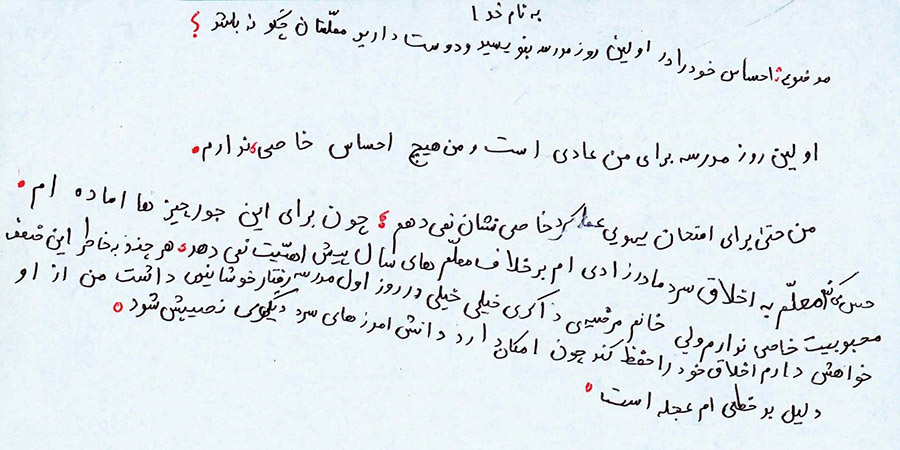 به نام خدا
موضوع: احساس خود را در اولین روز مدرسه بنویسید و دوست دارید معلّمتان چگونه باشد ؟
اولین روز مدرسه برای من عادی است و من هیچ احساس خاصی ندارم.
من حتی برای امتحان یهویی عملکرد خاصی نشان نمی دهم ؛ چون برای این جور چیز ها اماده ام .
حس می کنم معلّم به اخلاق سرد مادرزادی ام برخلاف معلّم های سال پیش اهمّیت نمی دهد، هر چند به خاطر این ضعف
محبوبیت خاصی ندارم ولی خانم مرضیه ی ذاکری خیلی خیلی در روز اول مدرسه رفتار خوشایندی داشت من از او
خواهش دارم اخلاق خود را حفظ کند چون امکان دارد دانش اموز های سرد دیگری نصیبش شود .
دلیل بد خطی ام عجله است .